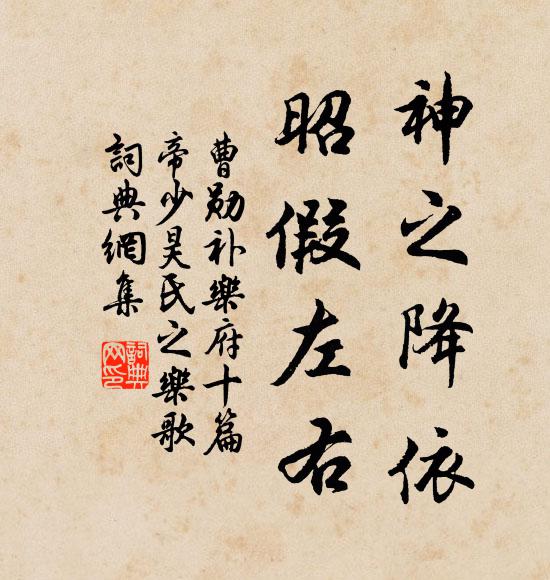 神之降依
昭假左右
曹勛补樂府十篇
帝少昊氏之樂歌
詞典網集
詞典
网印